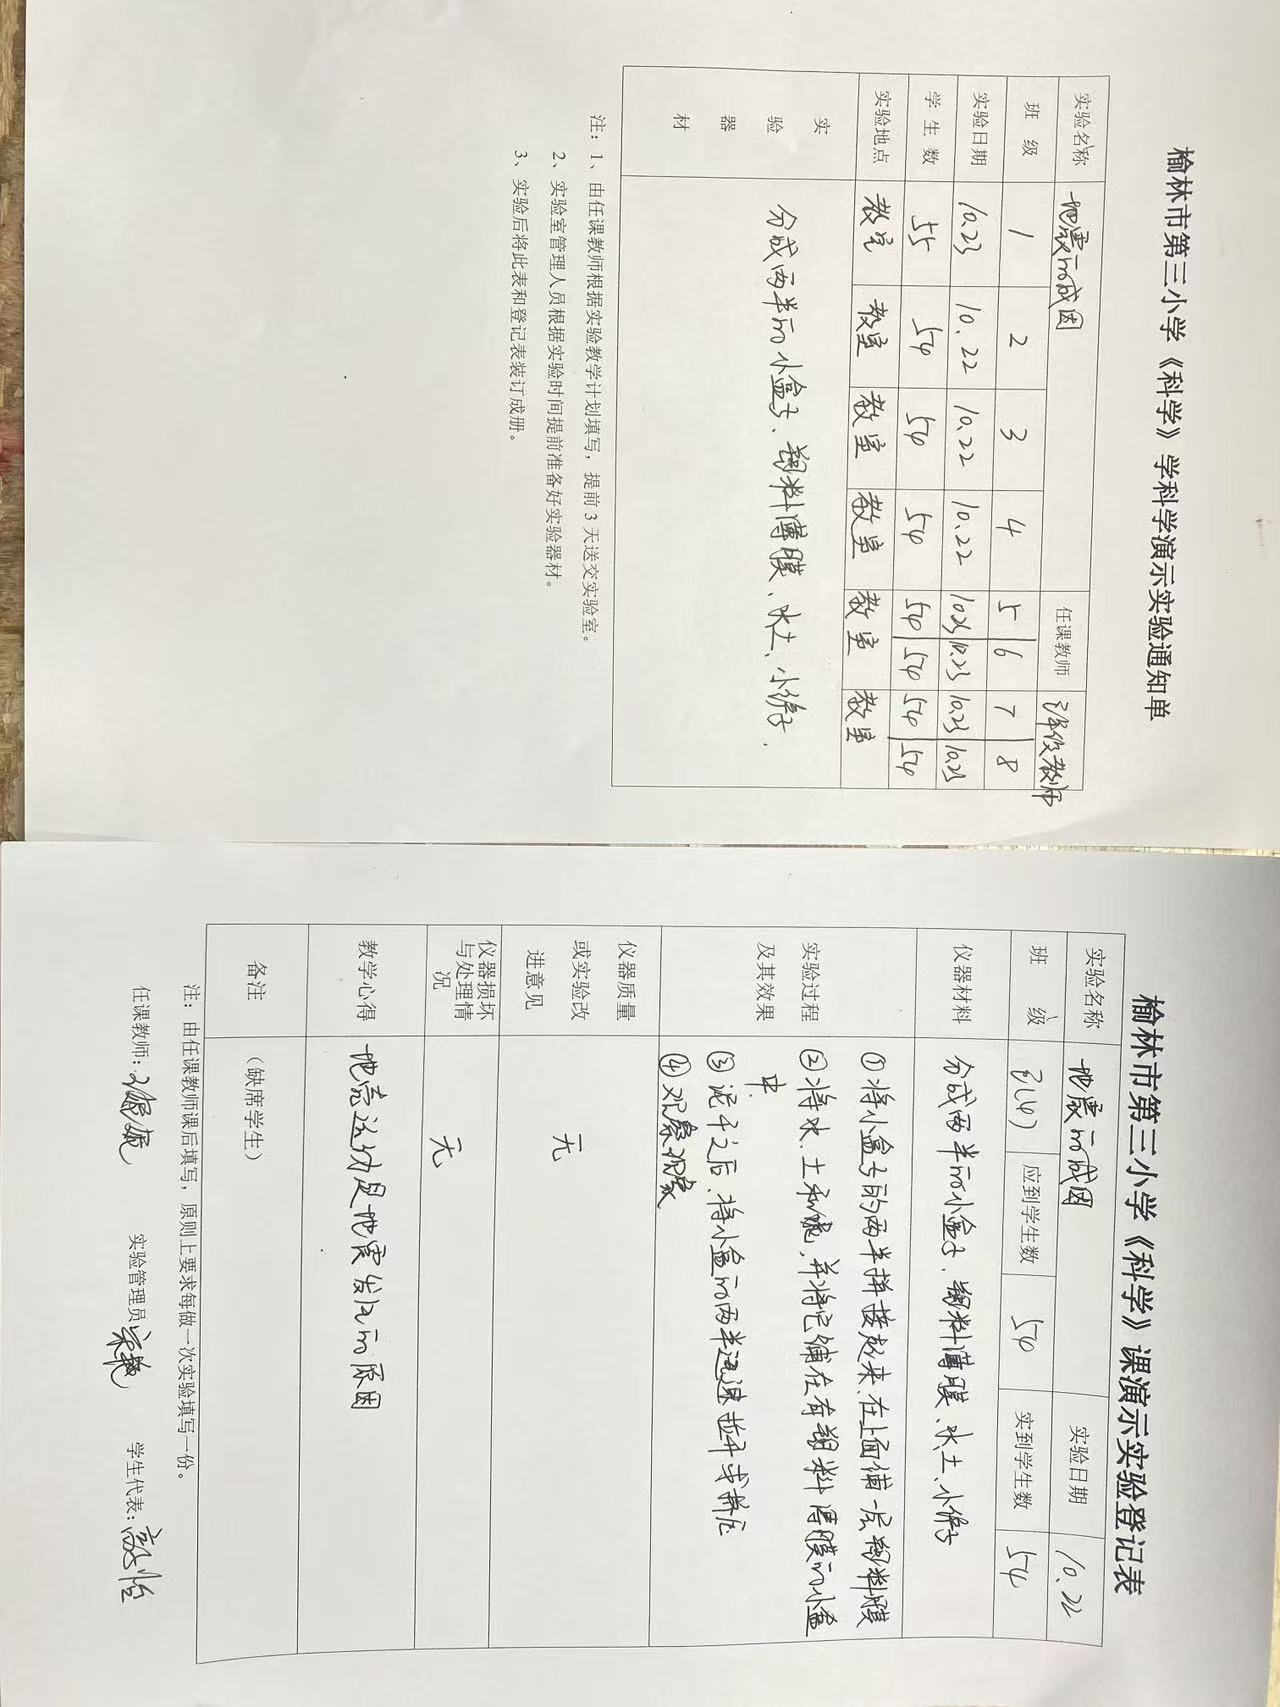 榆林市第三小学《科学》学科学演示实验通知单
实验名称 地震的成因 任课教师 年级教师
班 级 1 2 3 4 5 6 7 8
实验日期 10.23 10.22 10.22 10.22 10.23 10.23 10.23 10.23
学 生 数 55 54 54 54 54 54 54 54
实验地点 教室 教室 教室 教室 教室 教室
实验器材 分成两半的小盒子、塑料薄膜、水土、小铲子.
注：1、由任课教师根据实验教学计划填写，提前 3 天送交实验室。
2、实验室管理人员根据实验时间提前准备好实验器材。
3、实验后将此表和登记表装订成册。
榆林市第三小学《科学》课演示实验登记表
实验名称 地震的成因 实验日期 10.22
班 级 (4) 应到学生数 54 实到学生数 54
仪器材料 分成两半的小盒子、塑料薄膜、水、土、小铲子
实验过程及其效果 ①将小盒子的两半拼接起来,在上面铺一层塑料膜
②将水、土和成泥,并将它铺在有塑料薄膜的小盒
中.
③泥干之后,将小盒的两半迅速拉开或挤压
④观察现象
仪器质量或实验改进意见 无
仪器损坏与处理情况 无
教学心得 地壳运动是地震发生的原因
备注 （缺席学生）
注：由任课教师课后填写，原则上要求每做一次实验填写一份。
任课教师： 实验管理员 学生代表：